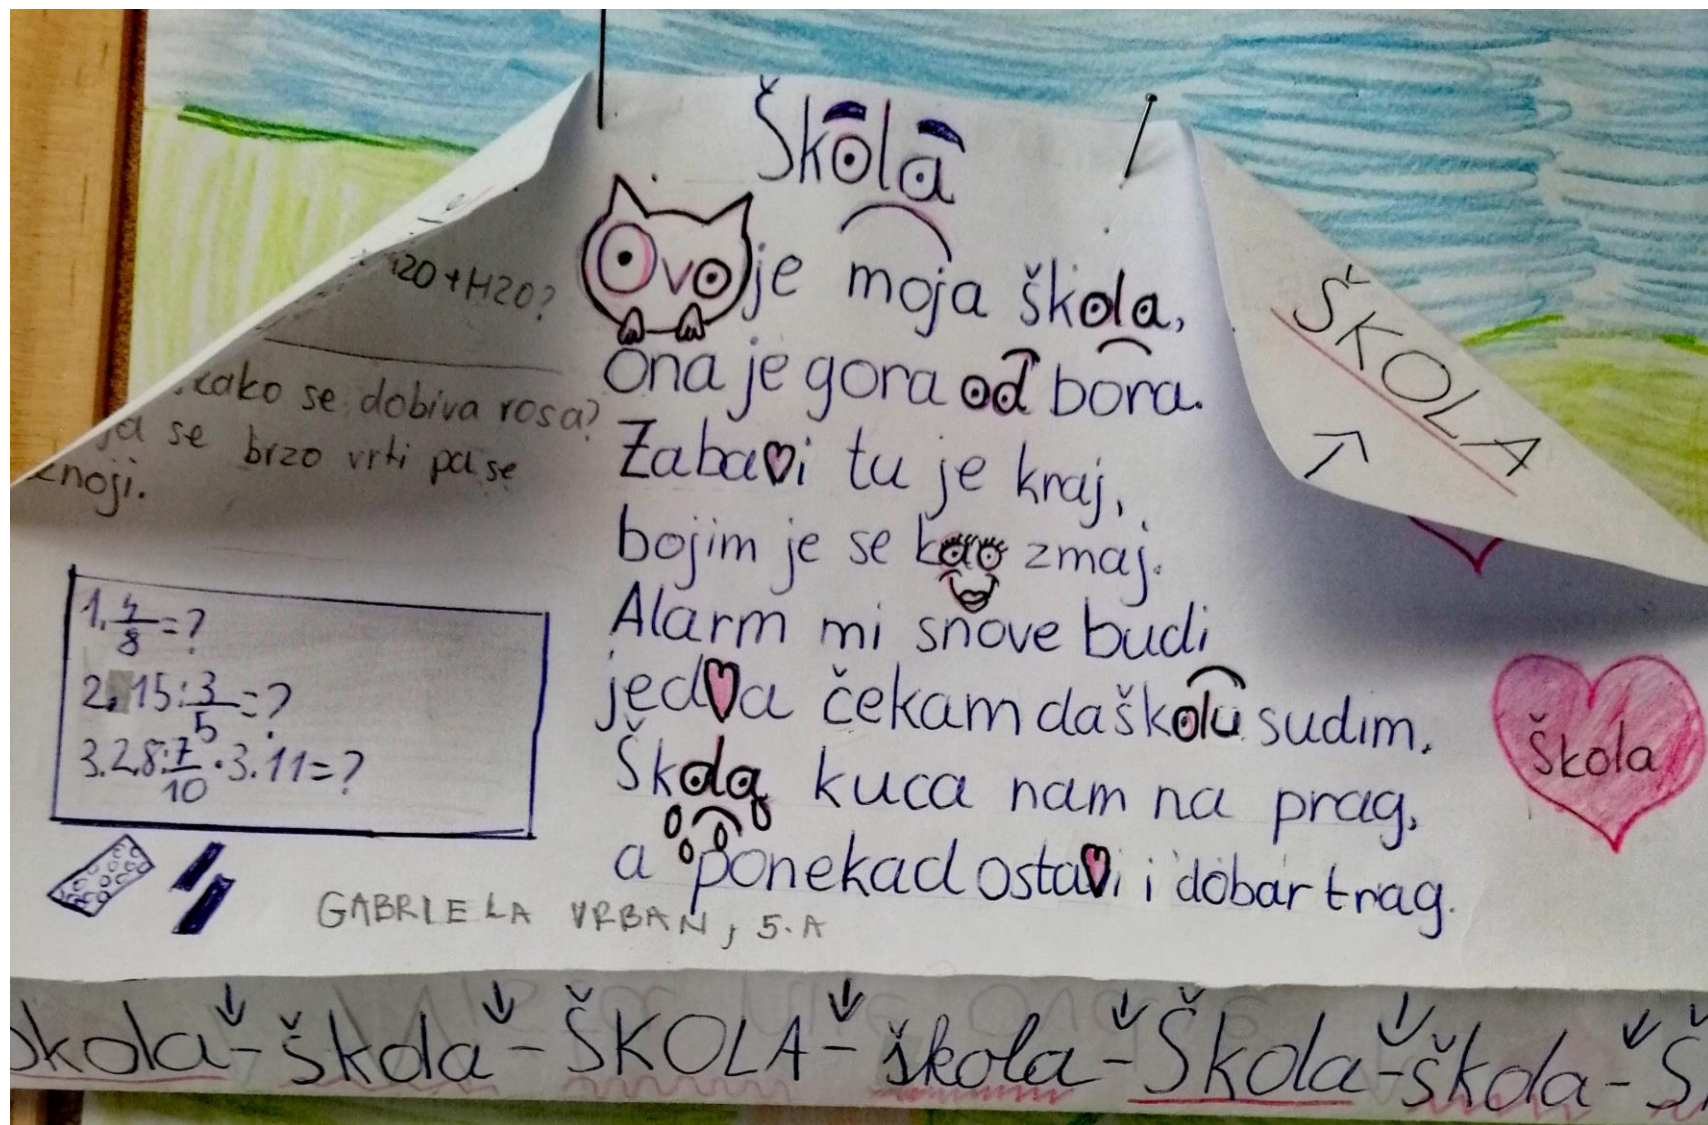 Škola
Ovo je moja škola,
ona je gora od bora.
Zabavi tu je kraj,
bojim je se kao zmaj.
Alarm mi snove budi
jedva čekam da školu sudim.
Škola kuca nam na prag,
a ponekad ostavi i dobar trag.
GABRIELA VRBAN, 5.A
20+H20?
kako se dobiva rosa?
se brzo vrti pa se
znoji.
1. 4/8=?
2. 15:3/5=?
3. 2,8:7/10·3.11=?
ŠKOLA
Škola
škola-škola-ŠKOLA-škola-Škola-škola-Š